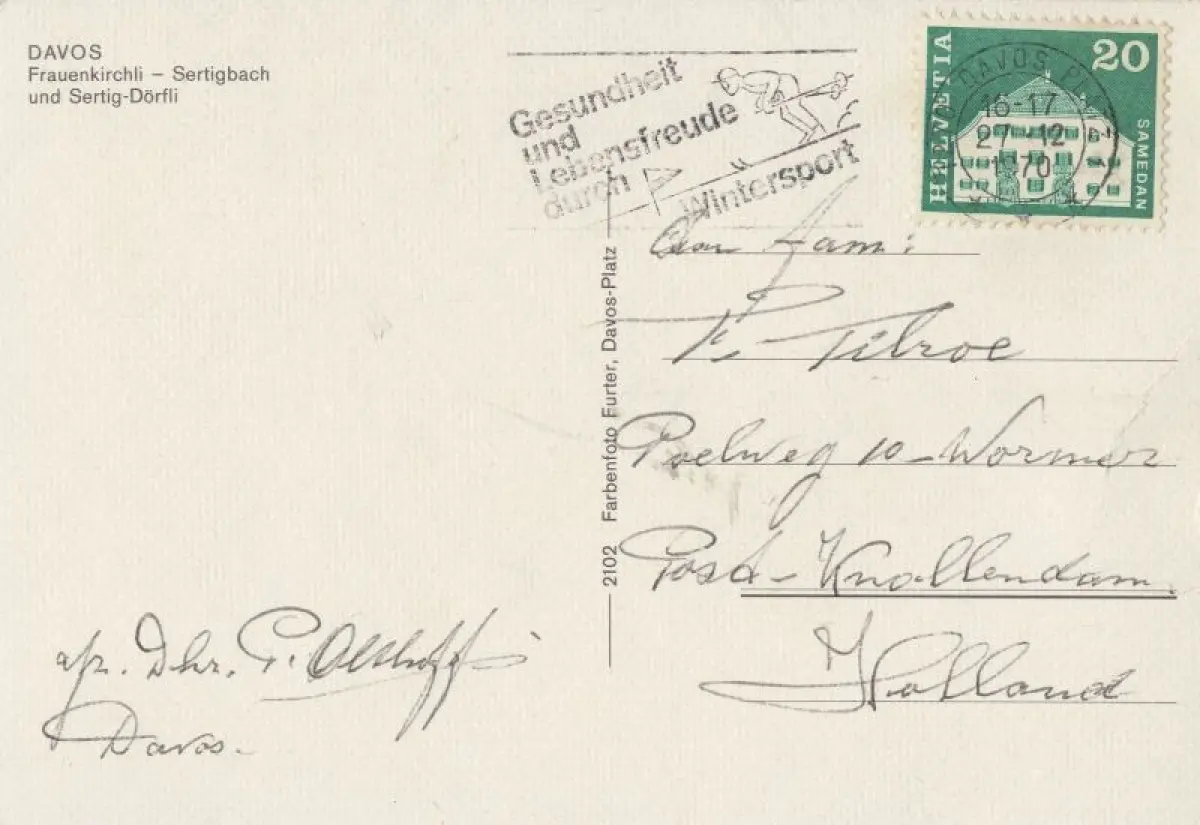 DAVOS
Frauenkirchli – Sertigbach
und Sertig-Dörfli
Gesundheit
und
Lebensfreude
durch
Wintersport
HELVETIA
20
SAMEDAN
DAVOS PLATZ
16-17
27-12
1970
Aan Fam:
P. Tilroe
Poelweg 10 – Wormer
Post – Knollendam
Holland
2102 Farbenfoto Furter, Davos-Platz
afz. Dhr. P. Olthoff
Davos.